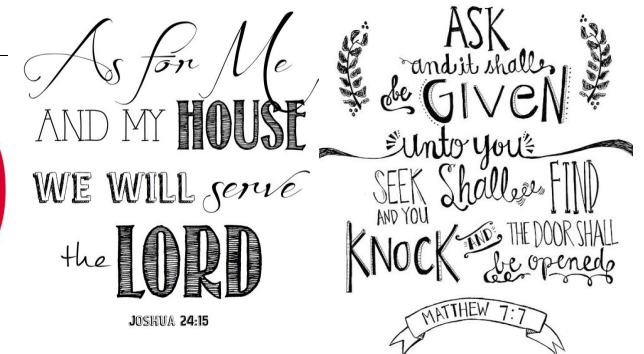 As for Me
AND MY HOUSE
WE WILL serve
the LORD
JOSHUA 24:15
ASK
and it shall
be GIVEN
unto you
SEEK Shall FIND
AND YOU
KNOCK AND THE DOOR SHALL
be opened
MATTHEW 7:7